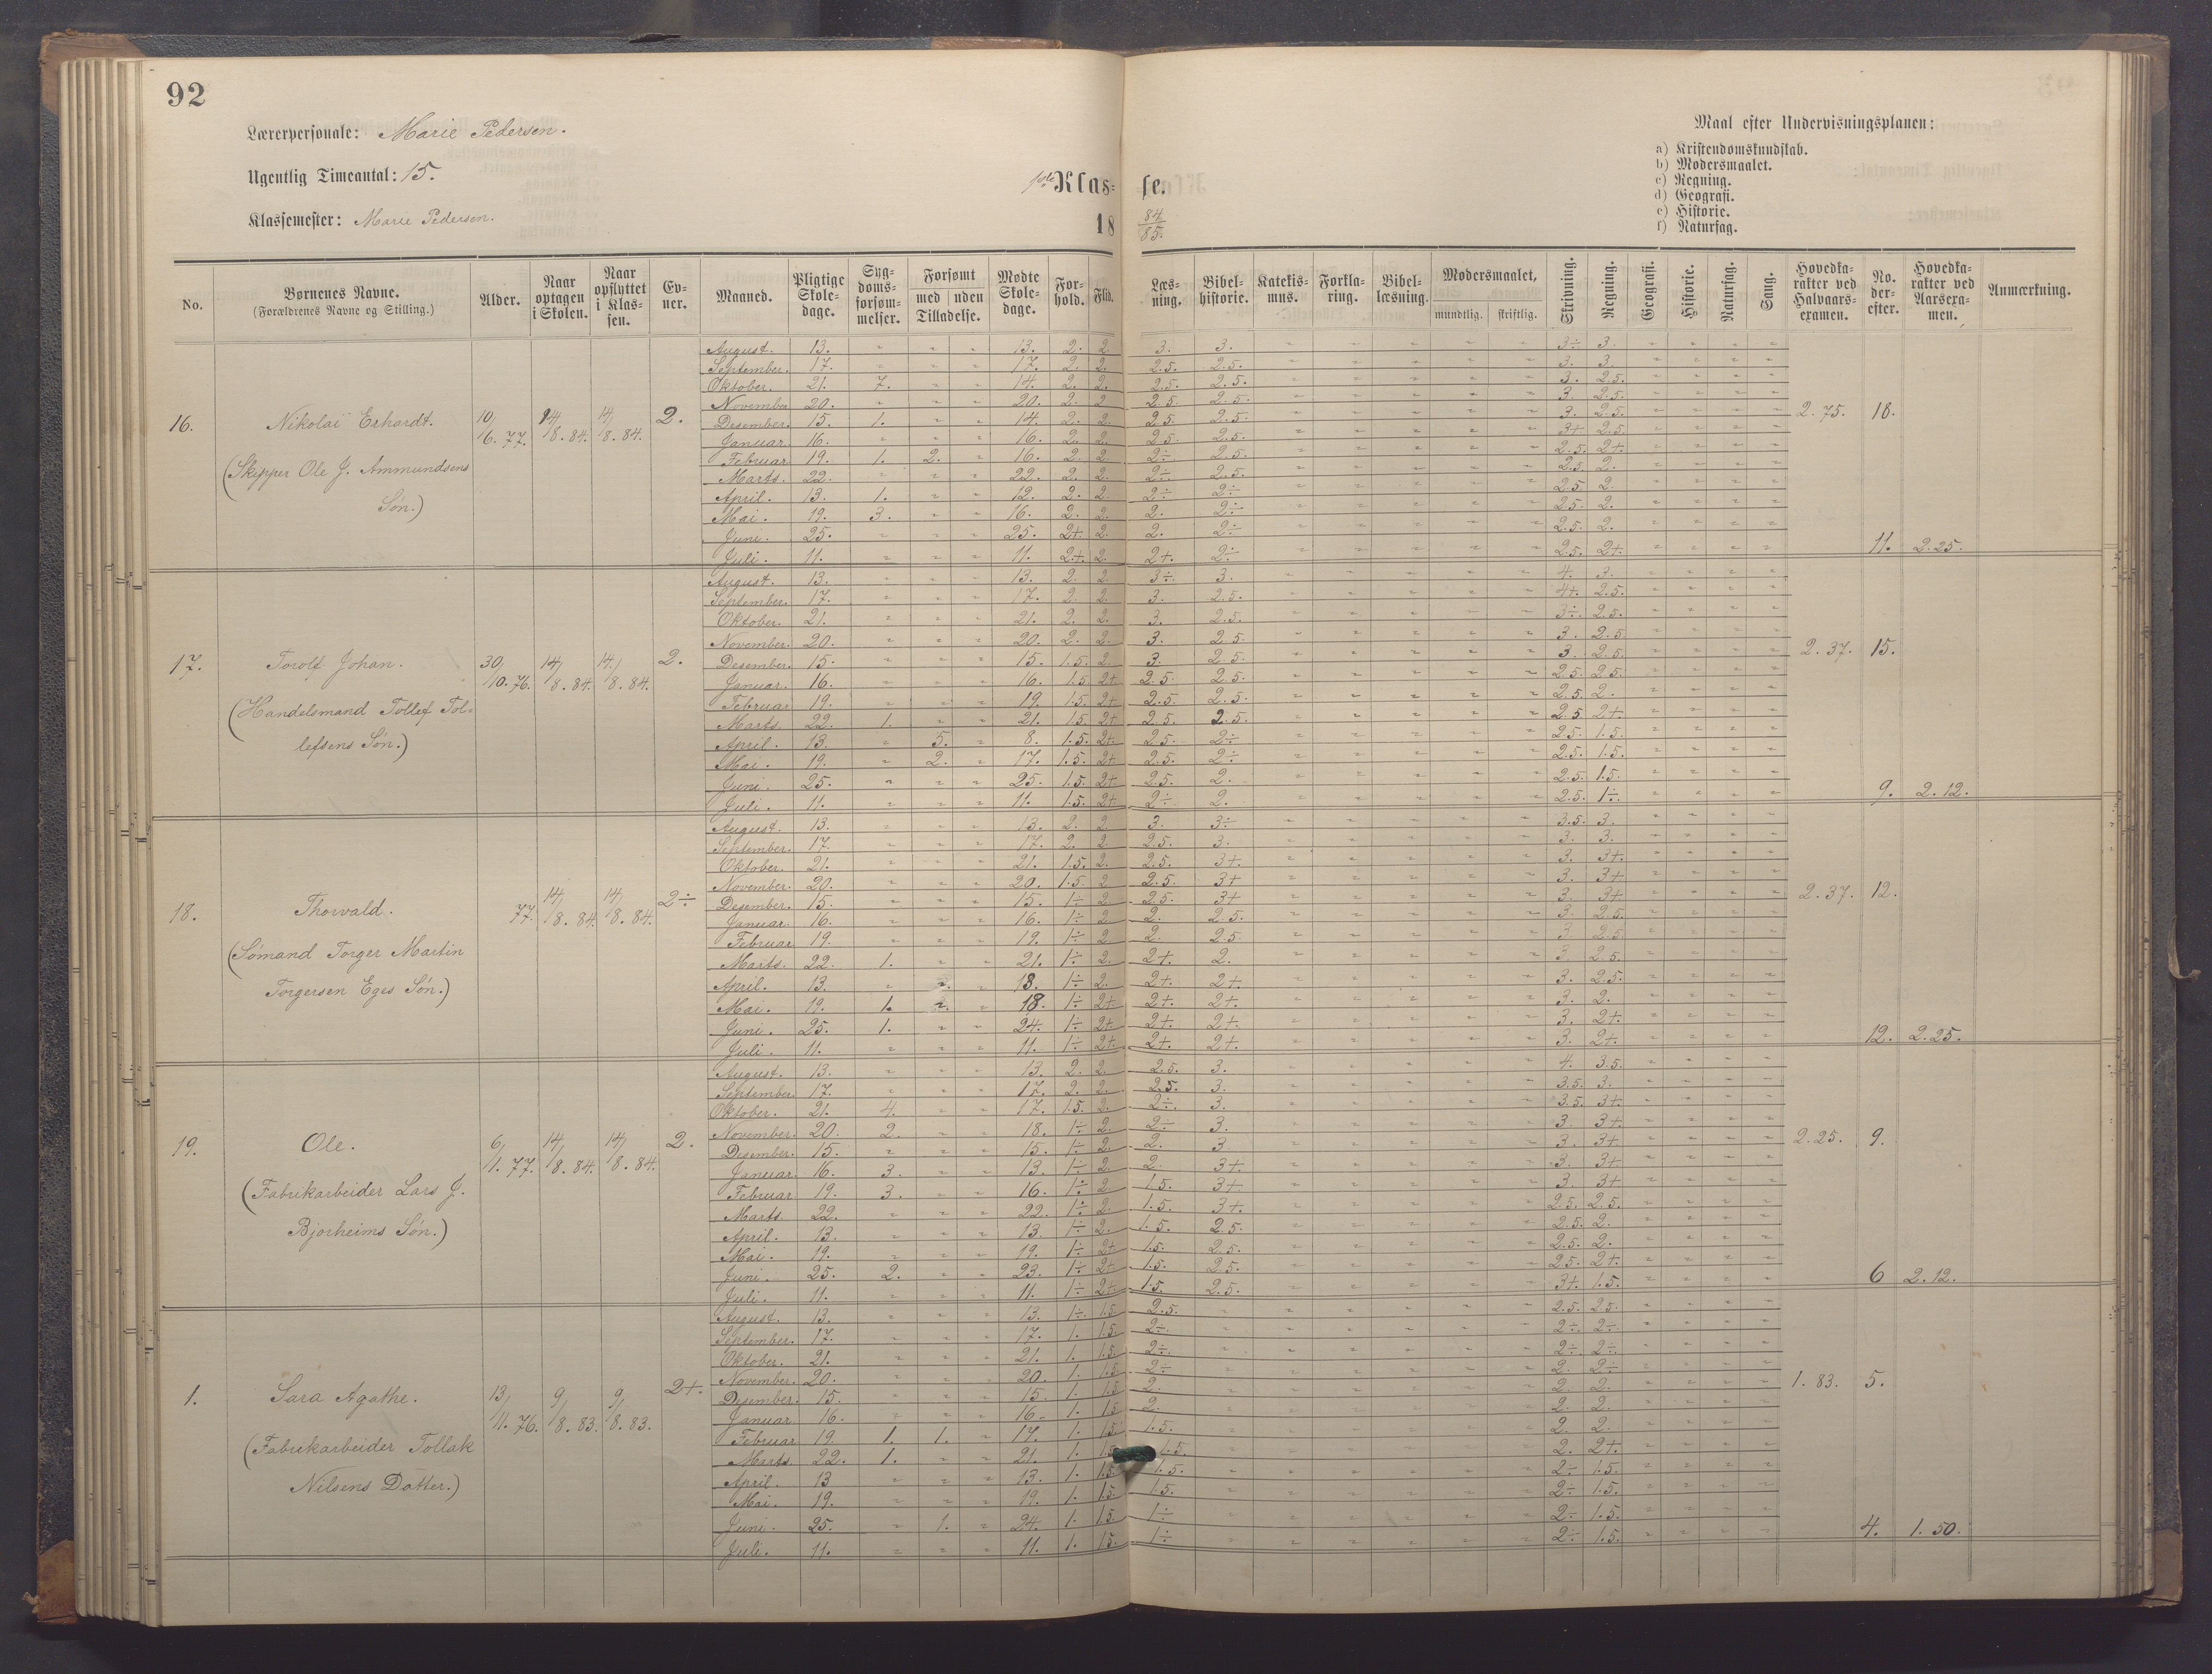 92
Lærerpersonale: Marie Pedersen.
Ugentlig Timeantal: 15.
Klassemester: Marie Pedersen.
1ste Klasse.
18 84/85.
Maal efter Undervisningsplanen:
a) Kristendomskundskab.
b) Modersmaalet.
c) Regning.
d) Geografi.
e) Historie.
f) Naturfag.
No. | Børnenes Navne. (Forældrenes Navne og Stilling.) | Alder. | Naar optagen i Skolen. | Naar opflyttet i Klassen. | Evner. | Maaned. | Pligtige Skoledage. | Sygdomsforsømmelser. | Forsømt med / uden Tilladelse. | Mødte Skoledage. | Forhold. | Flid. | Læsning. | Bibelhistorie. | Katekismus. | Forklaring. | Bibellæsning. | Modersmaalet, mundtlig. skriftlig. | Skrivning. | Regning. | Geografi. | Historie. | Naturfag. | Sang. | Hovedkarakter ved Halvaarsexamen. | No. derefter. | Hovedkarakter ved Aarsexamen. | Anmærkning.
16. Nikolai Erhardt. 10/6. 77. 14/8. 84. 14/8. 84. 2.
(Skipper Ole J. Ammundsens
Søn.)
August. 13. " " " 13. 2. 2. 3. 3. 3÷ 3.
September. 17. " " " 17. 2. 2. 2.5. 2.5. 3. 3.
Oktober. 21. 7. " " 14. 2. 2. 2.5. 2.5. 3. 2.5.
November. 20. " " " 20. 2. 2. 2.5. 2.5. 3. 2.5.
Desember. 15. 1. " " 14. 2. 2. 2.5. 2.5. 3. 2.5. 2.75. 18.
Januar. 16. " " " 16. 2. 2. 2.5. 2.5. 3+ 2.5.
Februar. 19. 1. 2. " 16. 2. 2. 2÷ 2.5. 2.5. 2+
Marts. 22. " " " 22. 2. 2. 2÷ 2.5. 2.5. 2.
April. 13. 1. " " 12. 2. 2. 2÷ 2÷ 2.5 2.
Mai. 19. 3. " " 16. 2. 2. 2. 2÷ 2.5 2.
Juni. 25. " " " 25. 2+ 2. 2. 2÷ 2.5. 2.
Juli. 11. " " " 11. 2+. 2. 2+ 2÷ 2.5. 2+. 11. 2.25.
17. Torolf Johan. 30/10. 76. 14/8. 84. 14/8. 84. 2.
(Handelsmand Tollef Tol-
lefsens Søn.)
August. 13. " " " 13. 2. 2. 3÷ 3. 4. 3.
September. 17. " " " 17. 2. 2. 3. 2.5. 4+. 2.5.
Oktober. 21. " " " 21. 2. 2. 3. 2.5. 3÷ 2.5.
November. 20. " " " 20. 2. 2. 3. 2.5 3. 2.5.
Desember. 15. " " " 15. 1.5. 2. 3. 2.5. 3. 2.5. 2.37. 15.
Januar. 16. " " " 16. 1.5 2+ 2.5 2.5. 2.5 2.5.
Februar. 19. " " " 19. 1.5. 2+ 2.5. 2.5. 2.5. 2.
Marts. 22. 1. " " 21. 1.5 2+ 2.5. 2.5. 2.5 2+.
April. 13. " 5. " 8. 1.5. 2+. 2.5. 2÷ 2.5. 1.5.
Mai. 19. " 2. " 17. 1.5. 2+. 2.5. 2÷ 2.5. 1.5.
Juni. 25. " " " 25. 1.5 2+ 2.5. 2. 2.5 1.5.
Juli. 11. " " " 11. 1.5. 2+ 2÷ 2. 2.5. 1÷. 9. 2.12.
18. Thorvald. 77. 14/8. 84. 14/8. 84. 2÷
(Sømand Torger Martin
Torgersen Eges Søn.)
August. 13. " " " 13. 2. 2. 3. 3÷ 3.5. 3.
September. 17. " " " 17. 2. 2. 2.5. 3. 3. 3.
Oktober. 21. " " " 21. 1.5. 2. 2.5. 3+. 3. 3+.
November. 20. " " " 20. 1.5. 2. 2.5. 3+ 3. 3+
Desember. 15. " " " 15. 1÷ 2 2.5. 3+ 3. 3+ 2.37. 12.
Januar. 16. " " " 16. 1÷ 2. 2. 2.5. 3. 2.5.
Februar 19. " " " 19. 1÷ 2. 2. 2.5 3. 2.5
Marts. 22. 1. " " 21. 1÷ 2. 2+. 2. 3. 2.5.
April. 13. " " " 13. 1÷ 2. 2+ 2+ 3. 2.5.
Mai. 19. 1. " " 18. 1÷ 2+ 2+ 2+. 3. 2.
Juni. 25. 1. " " 24. 1÷ 2+. 2+. 2+. 3. 2+
Juli. 11. " " " 11. 1÷ 2+. 2+. 2+. 3. 2+. 12. 2.25.
19. Ole. 6/1. 77. 14/8. 84. 14/8. 84. 2.
(Fabrikarbeider Lars J.
Bjorheims Søn.)
August. 13. " " " 13. 2. 2. 2.5. 3. 4. 3.5.
September. 17. " " " 17. 2. 2. 2.5. 3. 3.5. 3.
Oktober. 21. 4. " " 17. 1.5. 2. 2÷. 3. 3.5. 3+.
November. 20. 2. " " 18. 1÷ 2. 2÷ 3. 3. 3+
Desember. 15. " " " 15. 1÷ 2. 2. 3 3. 3+ 2.25. 9.
Januar. 16. 3. " " 13. 1÷ 2. 2. 3+. 3. 3+
Februar 19. 3. " " 16. 1÷ 2. 1.5. 3+ 3. 3+
Marts. 22. " " " 22. 1÷ 2. 1.5. 3+. 2.5. 2.5.
April. 13. " " " 13. 1÷ 2. 1.5. 2.5. 2.5. 2.
Mai. 19. " " " 19. 1÷ 2+ 1.5. 2.5. 2.5. 2.
Juni. 25. 2. " " 23. 1÷ 2+ 1.5. 2.5. 2.5 2+
Juli. 11. " " " 11. 1÷ 2+. 1.5. 2.5. 3+. 1.5. 6 2.12.
1. Sara Agathe. 13/11. 76. 9/8. 83. 9/8. 83. 2+.
(Fabrikarbeider Tollak
Nilsens Datter.)
August. 13. " " " 13. 1÷. 1.5 2.5. " 2.5. 2.5.
September. 17. " " " 17. 1. 1.5. 2÷ " 2÷. 2÷.
Oktober. 21. " " " 21. 1. 1.5. 2÷ " 2÷ 2÷
November. 20. " " " 20. 1. 1.5 2÷ " 2. 2÷
Desember. 15. " " " 15. 1. 1.5 2. " 2. 2. 1.83. 5.
Januar. 16. " " " 16. 1. 1.5 2. " 2. 2.
Februar 19. 1. 1. " 17. 1. 1.5. 1.5. " 2. 2.
Marts. 22. 1. " " 21. 1. 1.5 1.5. 2. 2+.
April. 13 " " " 13. 1. 1.5. 1.5. " 2÷ 1.5.
Mai. 19. " " " 19. 1. 1.5. 1.5. " 2÷ 1.5.
Juni. 25. " 1. " 24. 1. 1.5. 1÷ " 2÷ 1.5.
Juli. 11. " " " 11. 1. 1.5. 1÷ " 2÷ 1.5. 4. 1.50.